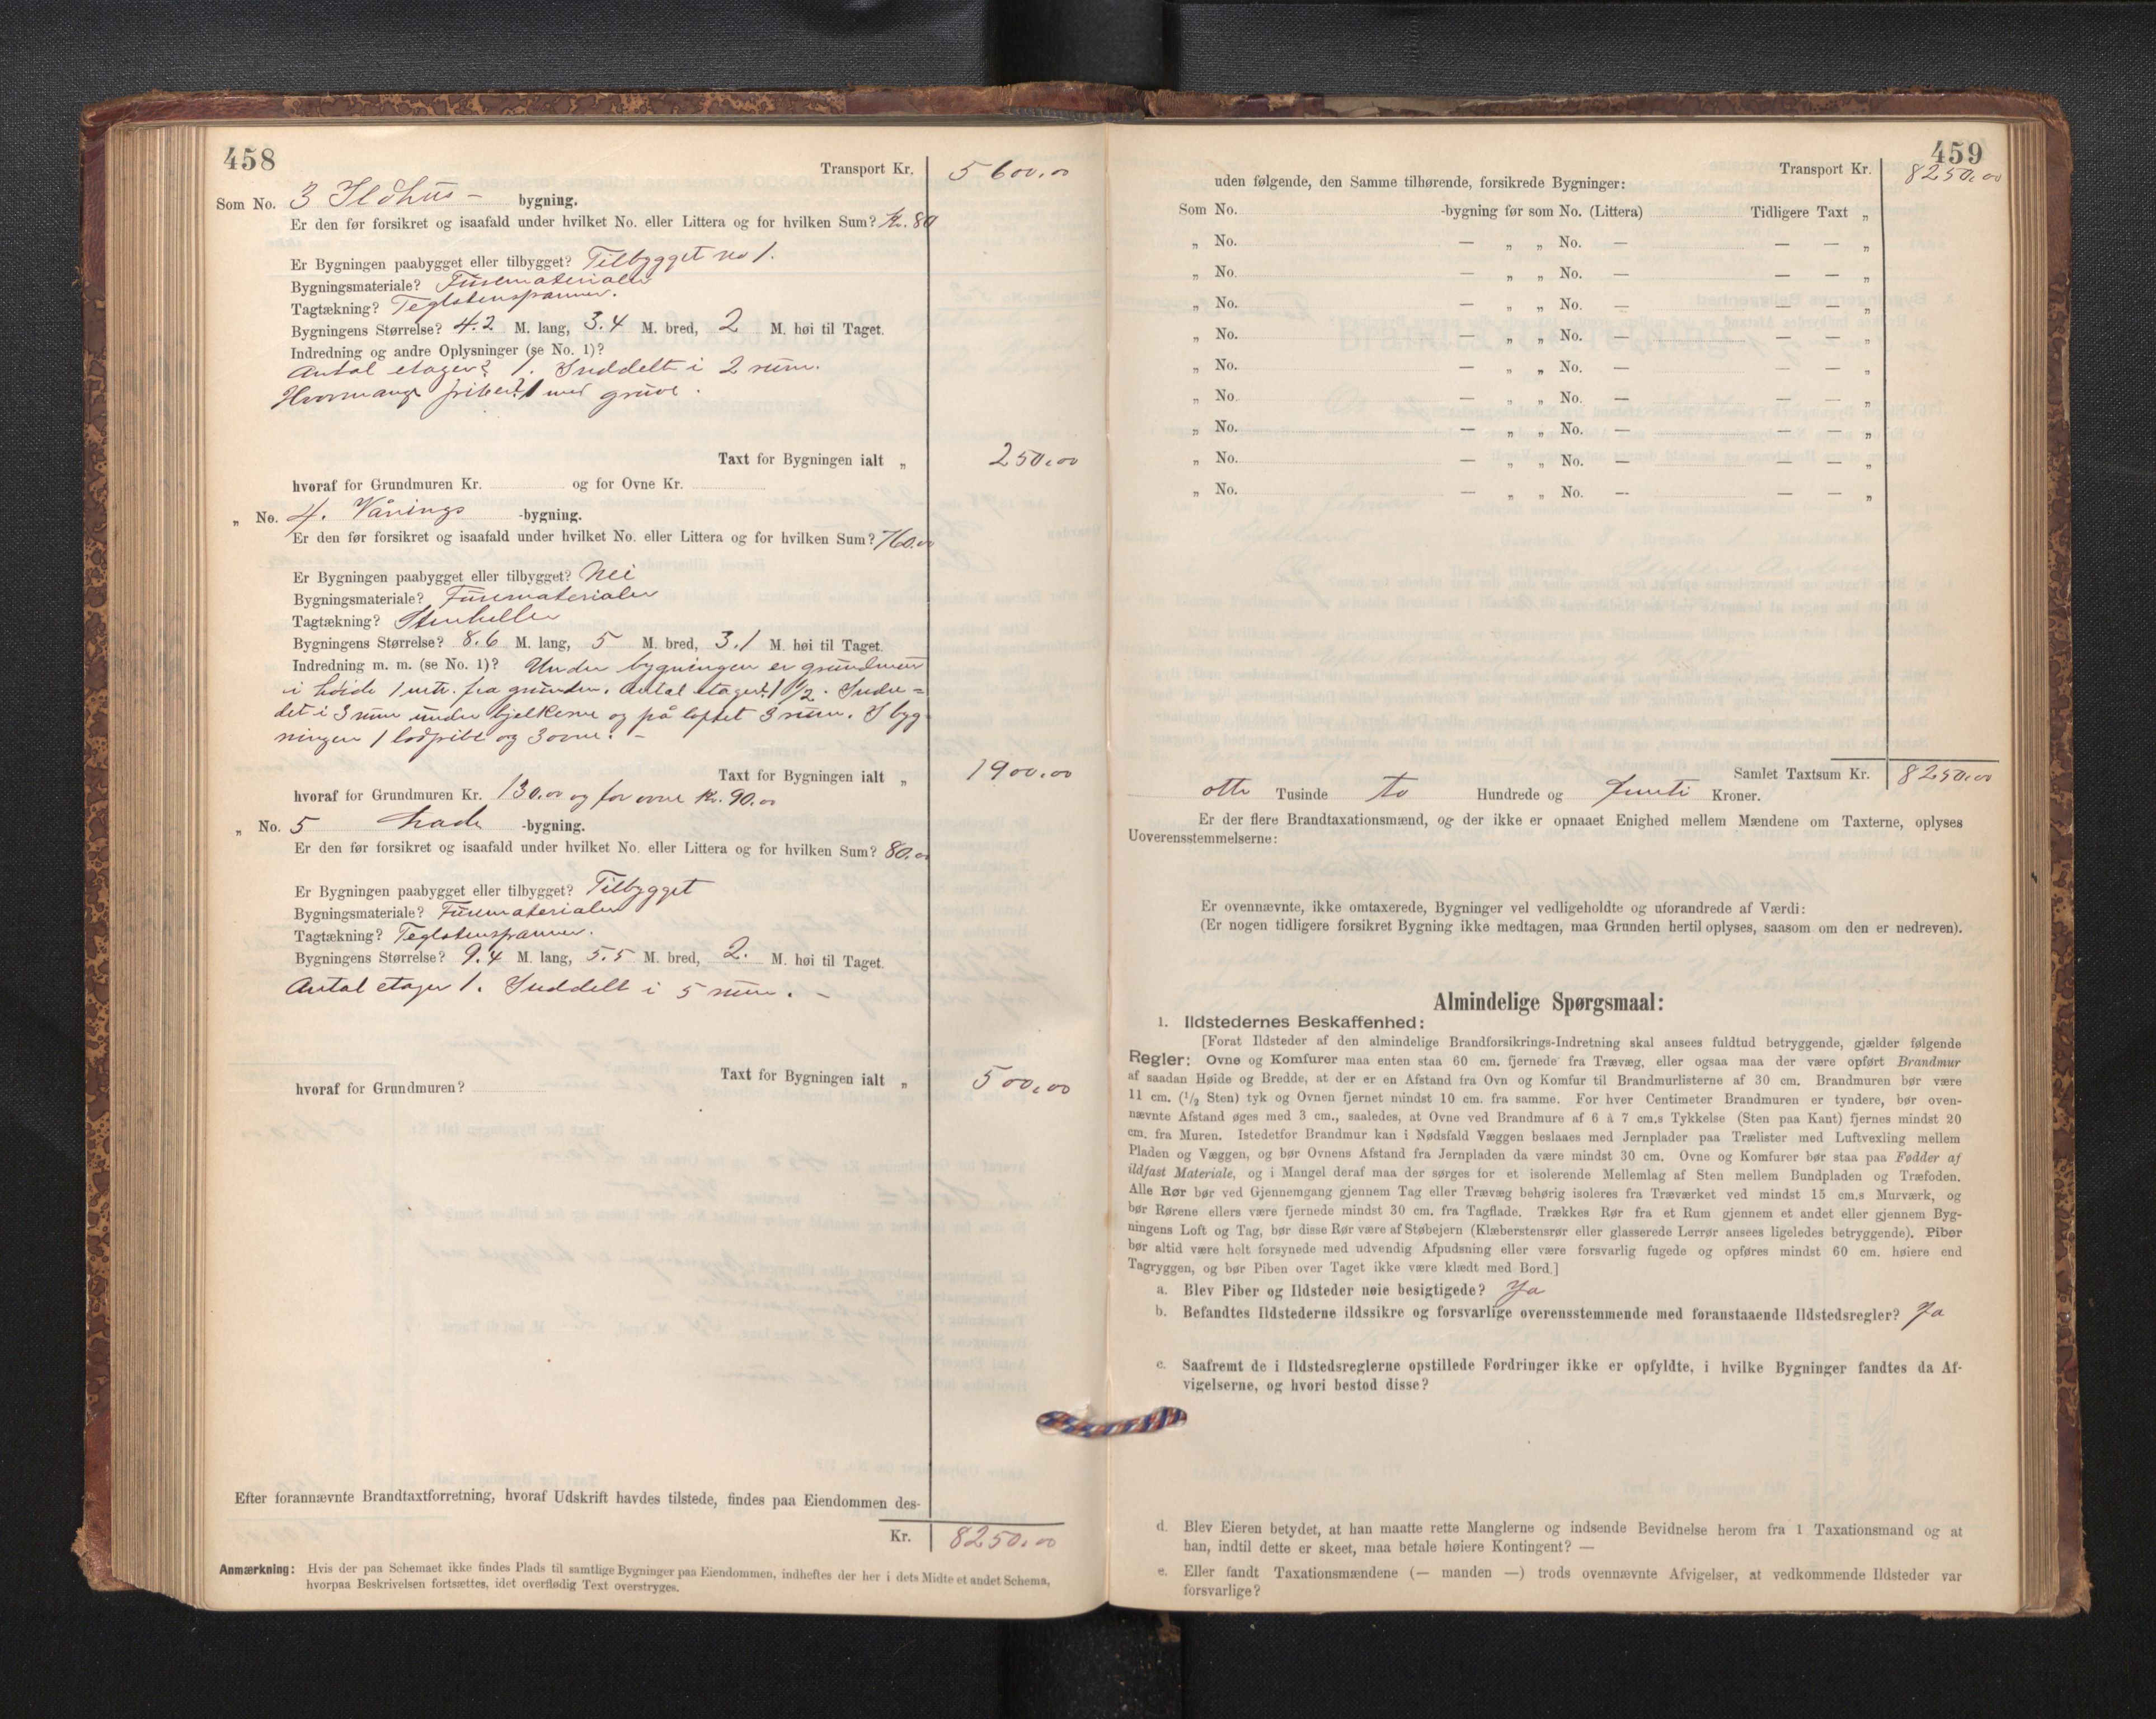 458
Transport Kr. 5600.00
Som No. 3 Ildhus- bygning.
Er den før forsikret og isaafald under hvilket No. eller Littera og for hvilken Sum? Kr. 80
Er Bygningen paabygget eller tilbygget? Tilbygget no 1.
Bygningsmateriale? Furematerialer
Tagtækning? Teglstenspanner.
Bygningens Størrelse? 4.2 M. lang, 3.4 M. bred, 2 M. høi til Taget.
Indredning og andre Oplysninger (se No. 1)?
Antal etager? 1. Inddelt i 2 rum.
Hvormange piber? 1 med grue.
Taxt for Bygningen ialt „ 250.00
hvoraf for Grundmuren Kr. og for Ovne Kr.
„ No. 4. Vånings -bygning.
Er den før forsikret og isaafald under hvilket No. eller Littera og for hvilken Sum? 760.00
Er Bygningen paabygget eller tilbygget? Nei
Bygningsmateriale? Furematerialer
Tagtækning? Stenheller
Bygningens Størrelse? 8.6 M. lang, 5 M. bred, 3.1 M. høi til Taget.
Indredning m. m. (se No. 1)? Under bygningen er grundmur
i høide 1 mtr. fra grunden. Antal etager? 1 1/2. Indre=
det i 3 rum under bjelkerne og på loftet 3 rum. I byg
ningen 1 lodpibe og 3 ovne. –
Taxt for Bygningen ialt „ 1900.00
hvoraf for Grundmuren Kr. 130.00 og for ovne Kr. 90.00
„ No. 5 Lade -bygning.
Er den før forsikret og isaafald under hvilket No. eller Littera og for hvilken Sum? 80.00
Er Bygningen paabygget eller tilbygget? Tilbygget
Bygningsmateriale? Furematerialer
Tagtækning? Teglstenspanner.
Bygningens Størrelse? 9.4 M. lang, 5.5 M. bred, 2. M. høi til Taget.
Antal etager 1. Inddelt i 5 rum. –
Taxt for Bygningen ialt „ 500.00
hvoraf for Grundmuren?
Efter forannævnte Brandtaxtforretning, hvoraf Udskrift havdes tilstede, findes paa Eiendommen des-
Kr. 8250.00
Anmærkning: Hvis der paa Schemaet ikke findes Plads til samtlige Bygninger paa Eiendommen, indheftes der her i dets Midte et andet Schema,
hvorpaa Beskrivelsen fortsættes, idet overflødig Text overstryges.
459
Transport Kr. 8250.00
uden følgende, den Samme tilhørende, forsikrede Bygninger:
Som No. -bygning før som No. (Littera) Tidligere Taxt „
„ No. — „ „ No. — — — „
„ No. — „ „ No. — — — „
„ No. — „ „ No. — — — „
„ No. — „ „ No. — — — „
„ No. — „ „ No. — — — „
„ No. — „ „ No. — — — „
„ No. — „ „ No. — — — „
„ No. — „ „ No. — — — „
„ No. — „ „ No. — — — „
Samlet Taxtsum Kr. 8250.00
otte Tusinde to Hundrede og femti Kroner.
Er der flere Brandtaxationsmænd, og der ikke er opnaaet Enighed mellem Mændene om Taxterne, oplyses
Uoverensstemmelserne:
Er ovennævnte, ikke omtaxerede, Bygninger vel vedligeholdte og uforandrede af Værdi:
(Er nogen tidligere forsikret Bygning ikke medtagen, maa Grunden hertil oplyses, saasom om den er nedreven).
Almindelige Spørgsmaal:
1. Ildstedernes Beskaffenhed:
[Forat Ildsteder af den almindelige Brandforsikrings-Indretning skal ansees fuldtud betryggende, gjælder følgende
Regler: Ovne og Komfurer maa enten staa 60 cm. fjernede fra Trævæg, eller ogsaa maa der være opført Brandmur
af saadan Høide og Bredde, at der er en Afstand fra Ovn og Komfur til Brandmurlisterne af 30 cm. Brandmuren bør være
11 cm. (1/2 Sten) tyk og Ovnen fjernet mindst 10 cm. fra samme. For hver Centimeter Brandmuren er tyndere, bør oven-
nævnte Afstand øges med 3 cm., saaledes, at Ovne ved Brandmure af 6 à 7 cm.s Tykkelse (Sten paa Kant) fjernes mindst 20
cm. fra Muren. Istedetfor Brandmur kan i Nødsfald Væggen beslaaes med Jernplader paa Trælister med Luftvexling mellem
Pladen og Væggen, og bør Ovnens Afstand fra Jernpladen da være mindst 30 cm. Ovne og Komfurer bør staa paa Fødder af
ildfast Materiale, og i Mangel deraf maa der sørges for et isolerende Mellemlag af Sten mellem Bundpladen og Træfoden.
Alle Rør bør ved Gjennemgang gjennem Tag eller Trævæg behørig isoleres fra Træværket ved mindst 15 cm.s Murværk, og
bør Rørene ellers være fjernede mindst 30 cm. fra Tagflade. Trækkes Rør fra et Rum gjennem et andet eller gjennem Byg-
ningens Loft og Tag, bør disse Rør være af Støbejern (Klæberstensrør eller glasserede Lerrør ansees ligeledes betryggende). Piber
bør altid være helt forsynede med udvendig Afpudsning eller være forsvarlig fugede og opføres mindst 60 cm. høiere end
Tagryggen, og bør Piben over Taget ikke være klædt med Bord.]
a. Blev Piber og Ildsteder nøie besigtigede? Ja
b. Befandtes Ildstederne ildssikre og forsvarlige overensstemmende med foranstaaende Ildstedsregler? Ja
c. Saafremt de i Ildstedsreglerne opstillede Fordringer ikke er opfyldte, i hvilke Bygninger fandtes da Af-
vigelserne, og hvori bestod disse?
d. Blev Eieren betydet, at han maatte rette Manglerne og indsende Bevidnelse herom fra 1 Taxationsmand og at
han, indtil dette er skeet, maa betale høiere Kontingent? —
e. Eller fandt Taxationsmændene (— manden —) trods ovennævnte Afvigelser, at vedkommende Ildsteder var
forsvarlige?